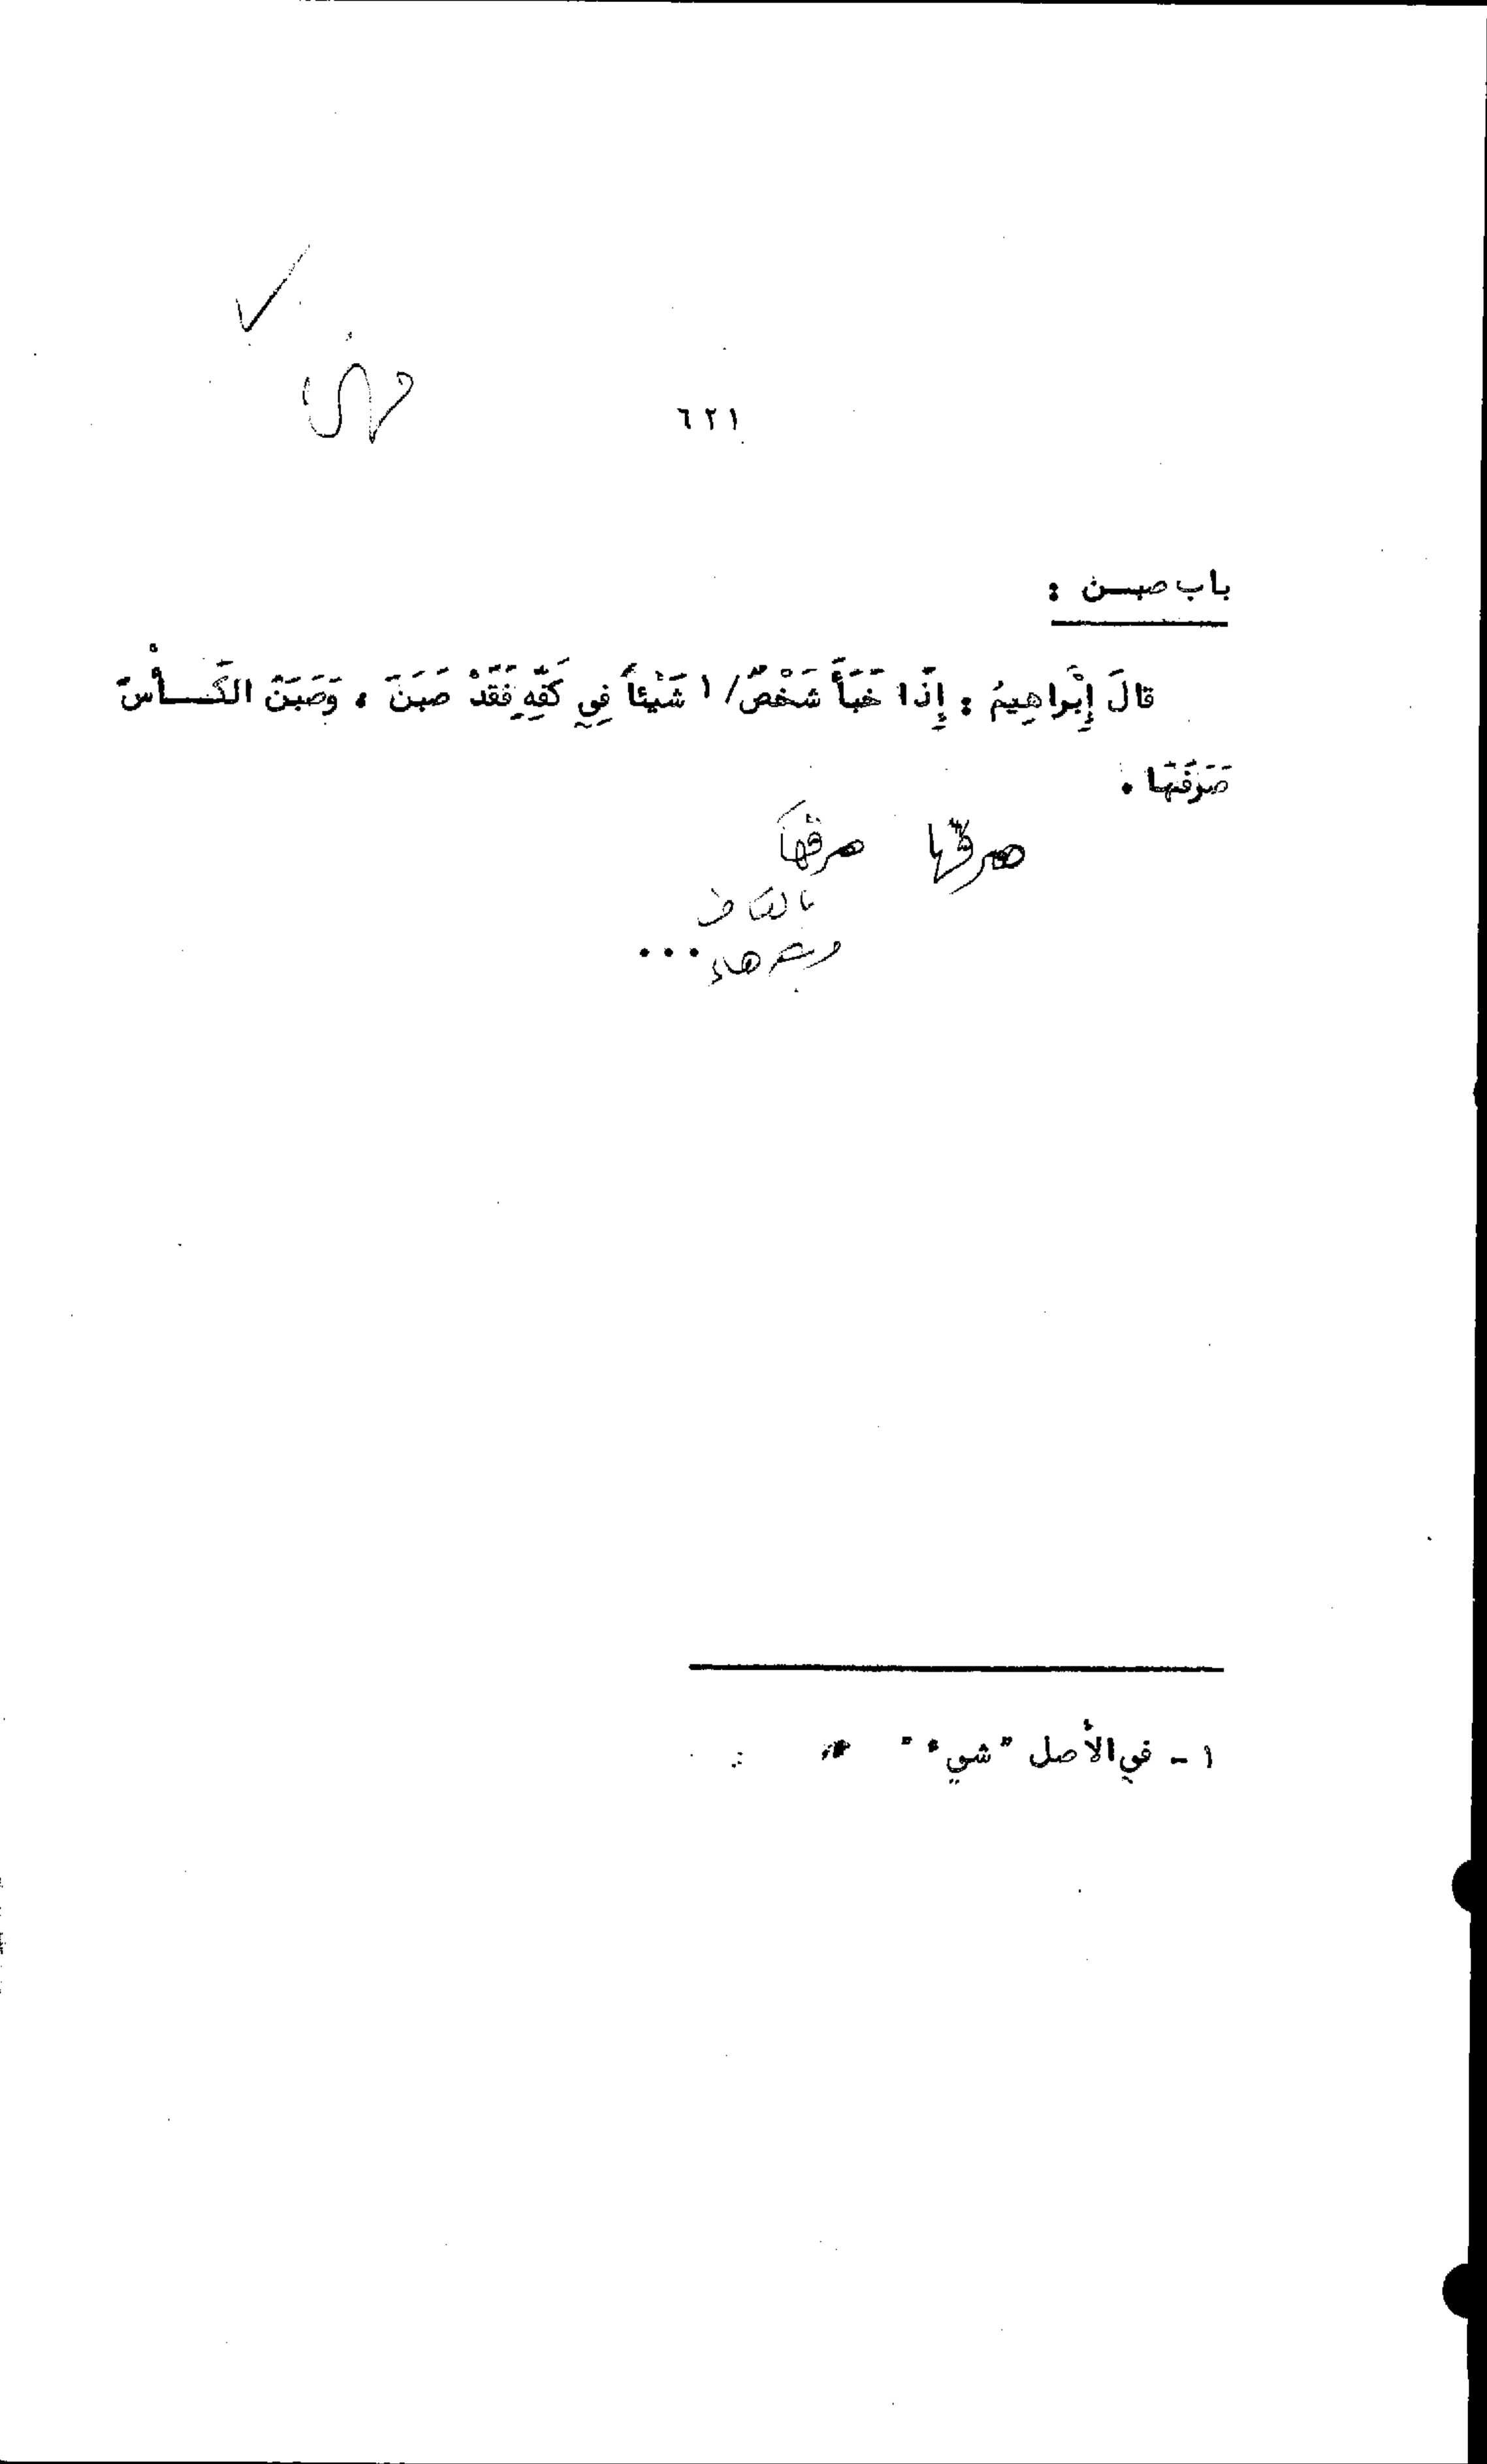 ٦٢١
باب صبـــن :
قالَ إِبْراهِيمُ : إِذَا خَبَأَ شَخْصٌ/١ شَيْئاً فِي كَفِّهِ فَقَدْ صَبَنَ ، وَصَبَنَ الكَـــأْسَ
صَرَفَهَا .
صرفها صرفها
بالقاف
...
١ - في الأصل "شيء"